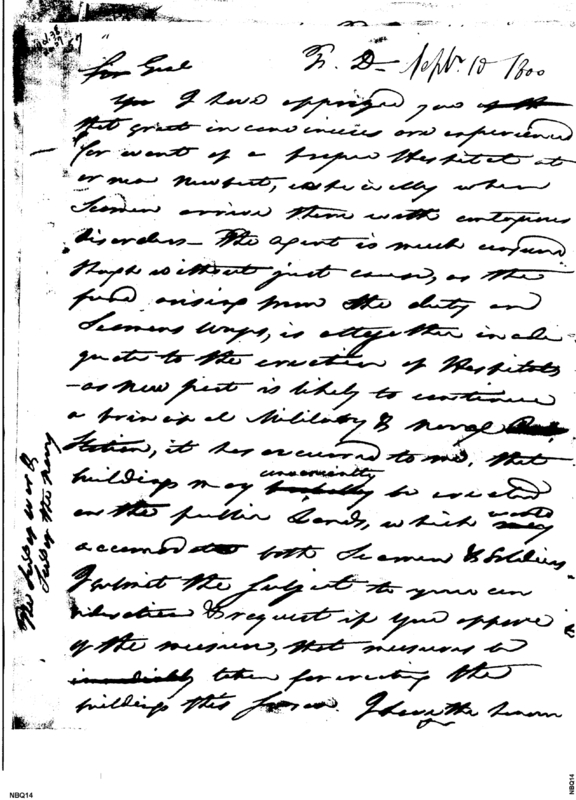 57
T. D. Septr. 10 1800
I have apprized you
that great inconveniencies are experienced
for want of a proper Hospital at
or near Newport, especially when
Seamen arrive there with contagious
disorders — The agent is much censured
though without just cause, as the
fund arising from the duty on
Seamens wages, is altogether inade
quate to the erection of Hospitals
— as New port is likely to continue
a principal Military & naval
Station, it has occurred to me, that
buildings may conveniently be erected
on the public Lands, which would
accomodate both Seamen & Soldiers
I submit the subject to your con
sideration & request if you approve
of the measure, that measures be
immediately taken for erecting the
buildings this season. I have the honor
The Secy of War &
Secy of the Navy
NBQ14
NBQ14